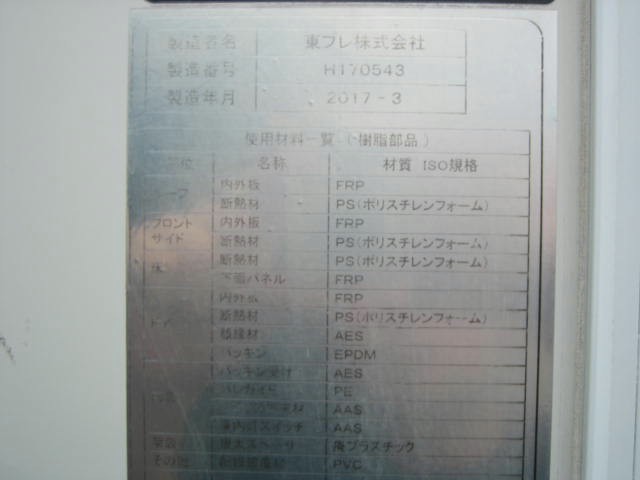 製造者名 東プレ株式会社
製造番号 H170543
製造年月 2017-3
使用材料一覧（樹脂部品）
部位 名称 材質 ISO規格
内外板 FRP
断熱材 PS(ポリスチレンフォーム)
フロント 内外板 FRP
サイド 断熱材 PS(ポリスチレンフォーム)
床 断熱材 PS(ポリスチレンフォーム)
下面パネル FRP
内外板 FRP
ドア 断熱材 PS(ポリスチレンフォーム)
AES
パッキン EPDM
パッキン受け AES
PE
AAS
庫内灯スイッチ AAS
廃プラスチック
その他 PVC